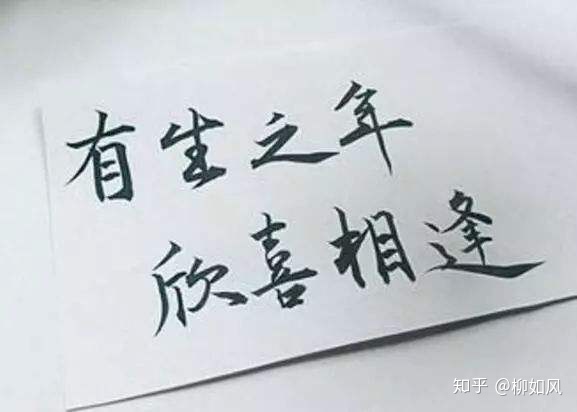 有生之年
欣喜相逢
知乎 @柳如风